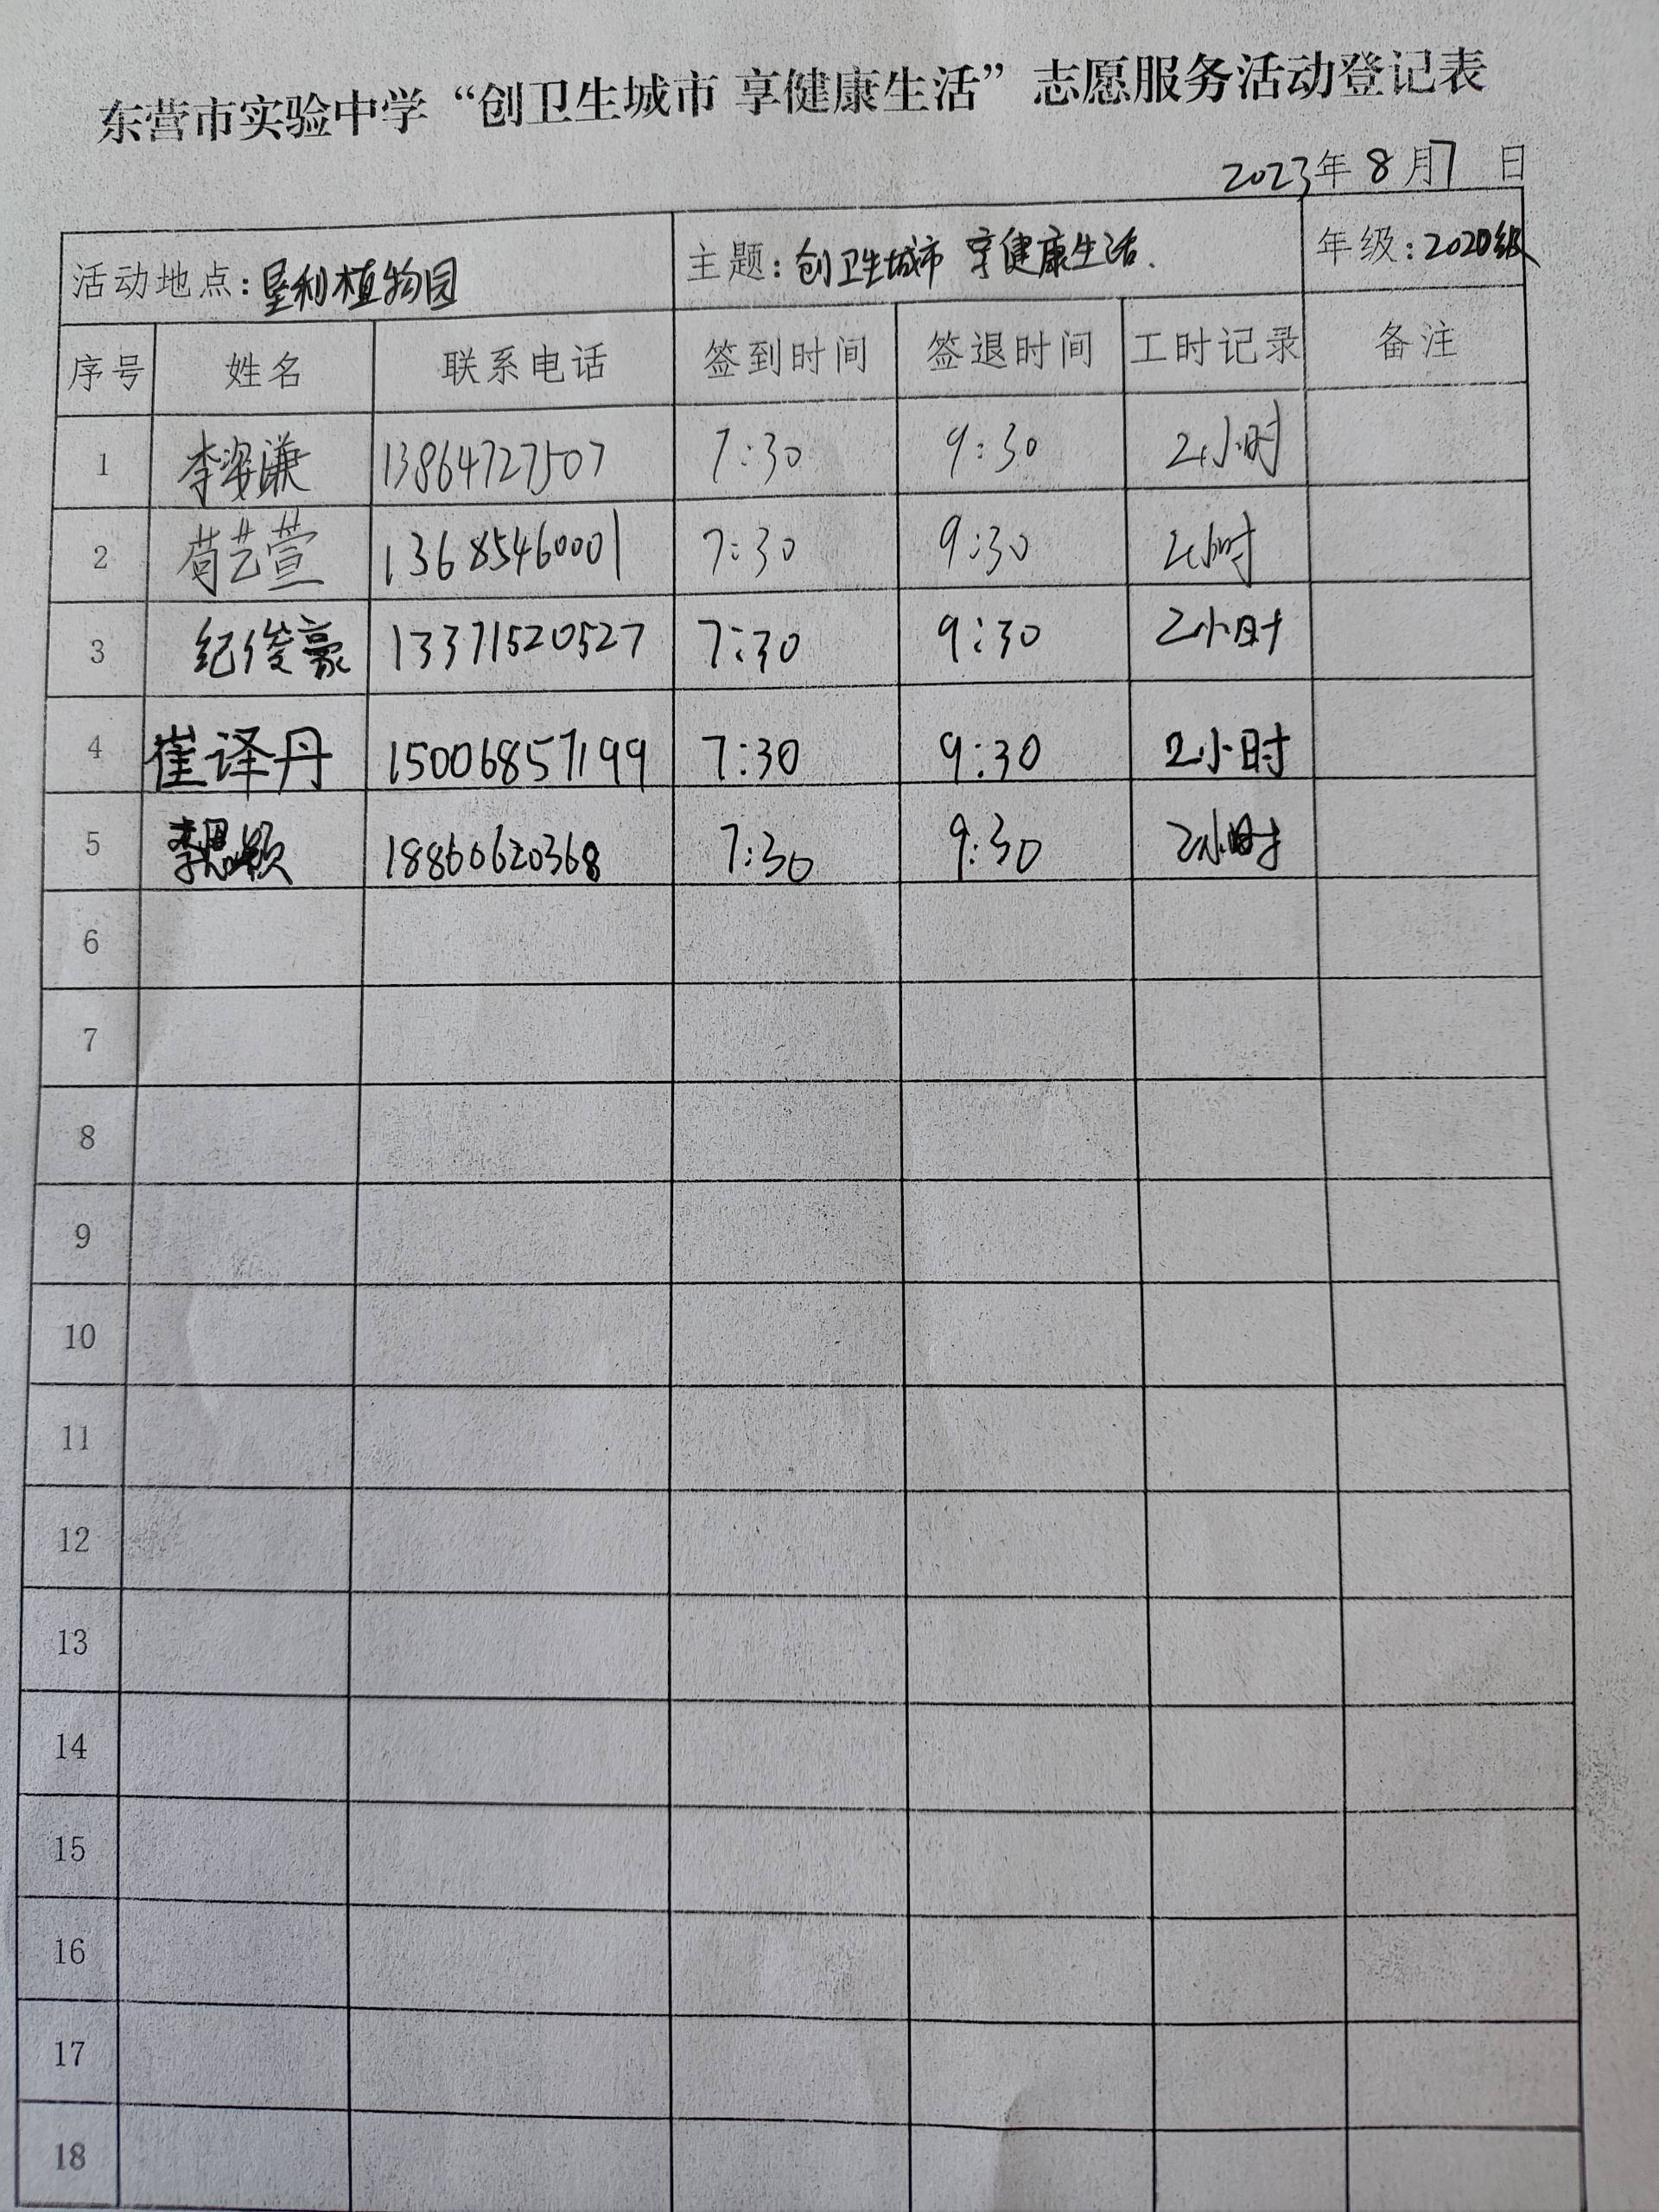 东营市实验中学“创卫生城市 享健康生活”志愿服务活动登记表
2023年 8 月7 日
活动地点:垦利植物园 主题:创卫生城市 享健康生活. 年级:2020级
序号 姓名 联系电话 签到时间 签退时间 工时记录 备注
1 李姿谦 13864727507 7:30 9:30 2小时
2 荀艺萱 13685460001 7:30 9:30 2小时
3 纪俊豪 13371520527 7:30 9:30 2小时
4 崔译丹 15006857199 7:30 9:30 2小时
5 李思颖 18860620368 7:30 9:30 2小时
6
7
8
9
10
11
12
13
14
15
16
17
18